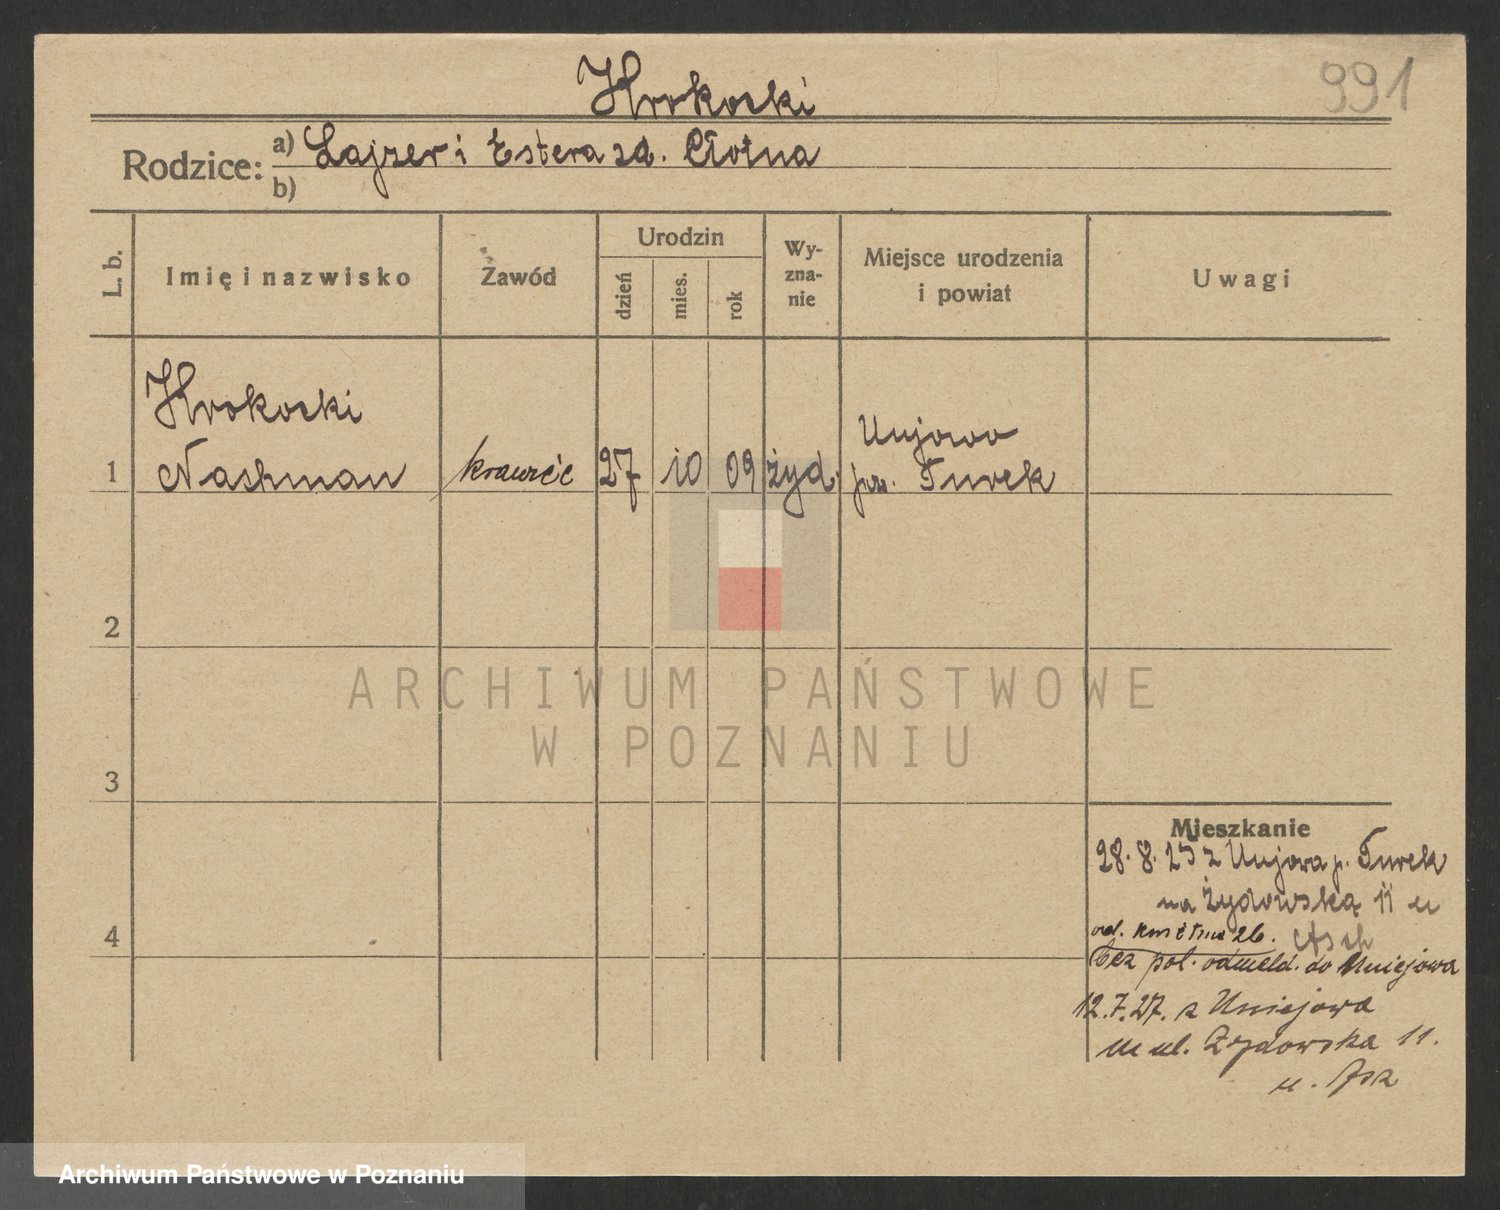 Krokocki
991
Rodzice: a) Lajzer i Estera zd. Złotna
b)
L. b.
Imię i nazwisko
Zawód
Urodzin
dzień
mies.
rok
Wy-
zna-
nie
Miejsce urodzenia
i powiat
Uwagi
Krokocki
1 Nachman krawiec 27 10 09 żyd. Unjowo
pow. Turek
2
ARCHIWUM PAŃSTWOWE
W POZNANIU
3
Mieszkanie
28. 8. 25 z Unjowa p. Turek
na Żydowską 11 u
Asch
4
od. kwietnia 26.
bez pol. odmeld. do Uniejowa
12.7.27. z Uniejowa
ul. Żydowska 11.
u.
Archiwum Państwowe w Poznaniu